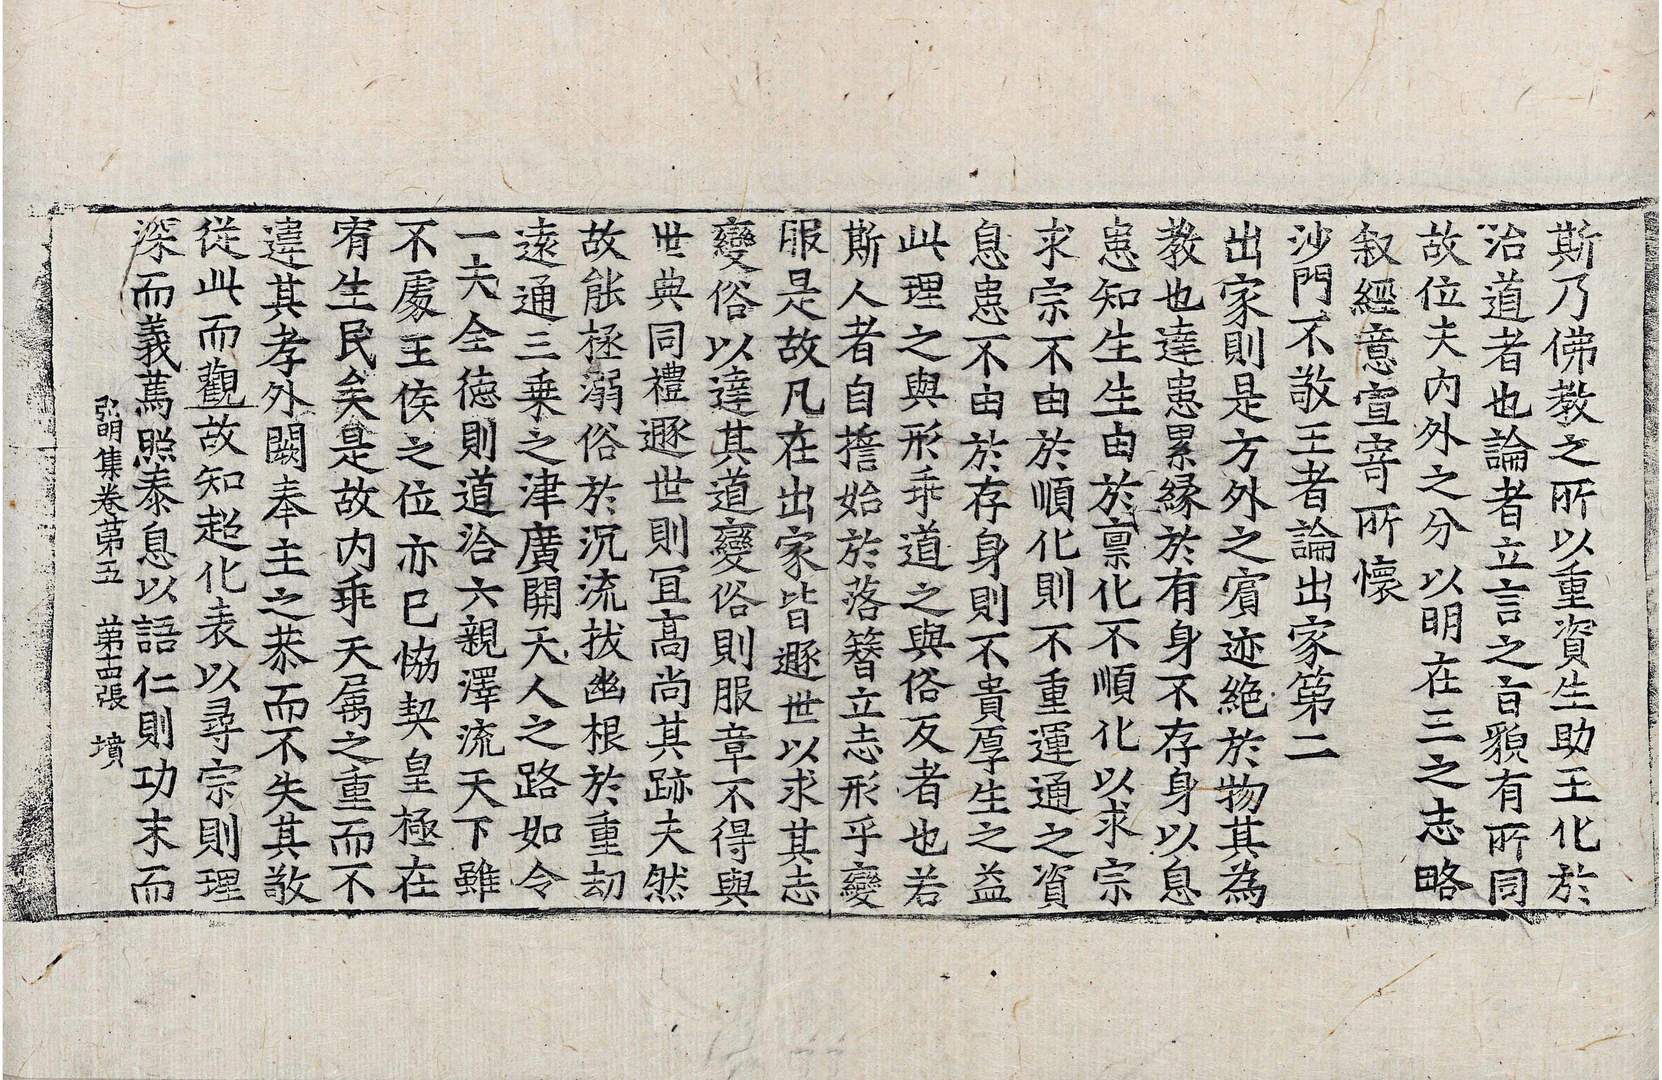 斯乃佛教之所以重資生助王化於
治道者也論者立言之旨貌有所同
故位夫內外之分以明在三之志略
叙經意宣寄所懷
沙門不敬王者論出家第二
出家則是方外之賓迹絶於物其為
教也達患累緣於有身不存身以息
患知生生由於禀化不順化以求宗
求宗不由於順化則不重運通之資
息患不由於存身則不貴厚生之益
此理之與形乖道之與俗反者也若
斯人者自擔始於落簪立志形乎變
服是故凡在出家皆遯世以求其志
變俗以達其道變俗則服章不得與
世典同禮遯世則宜高尚其跡夫然
故能極溺俗於沉流拔幽根於重劫
遠通三乗之津廣開天人之路如令
一夫全德則道洽六親澤流天下雖
不處王侯之位亦已恊契皇極在
宥生民矣是故內乖天属之重而不
違其孝外闕奉主之恭而不失其敬
從此而觀故知超化表以尋宗則理
深而義篤照泰息以語仁則功末而
弘明集卷苐五 苐十四張 墳